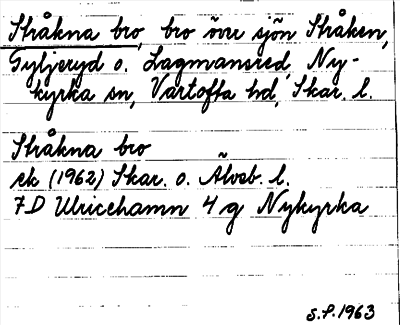 Stråkna bro, bro över sjön Stråken,
Gyljeryd o. Lagmansred, Ny-
kyrka sn, Vartofta hd, Skar. l.
Stråkna bro
ek (1962) Skar. o. Älvsb. l.
7D Ulricehamn 4 g Nykyrka
S.P. 1963